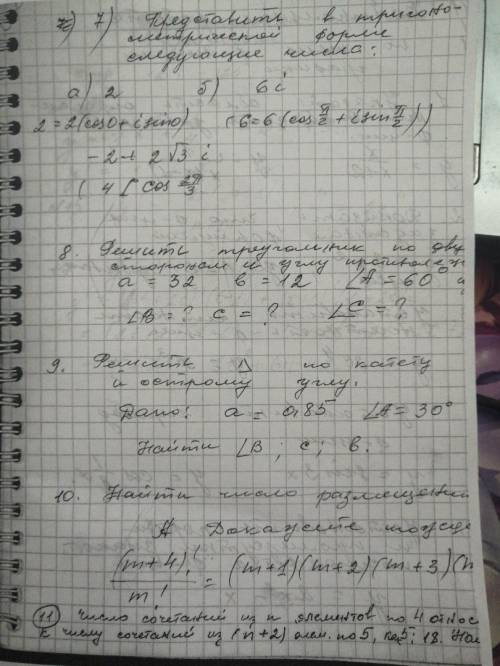 7) Представить в тригоно-
метрической форме
следующие числа:
а) 2 б) 6i
2 = 2(cos0 + i sin0) (6 = 6(cos π/2 + i sin π/2))
- 2 + 2√3 i
( 4 [ cos 2π/3
8. Решить треугольник по дву
сторонам и углу противолеж
a = 32 в = 12 ∠A = 60°
∠B = ? c = ? ∠C = ?
9. Решить △ по катету
и острому углу.
Дано: a = 0,85 ∠A = 30°
Найти ∠B ; c ; в.
10. Найти число размещений
Докажите тожде
(m+4)!/m! = (m+1)(m+2)(m+3)(m
11 Число сочетаний из n элементов по 4 относ
к числу сочетаний из (n+2) элем. по 5, как 5:18. Най